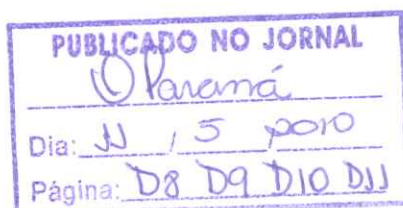 PUBLICADO NO JORNAL
O Paraná
Dia: 11 / 5 2010
Página: D8 D9 D10 D11